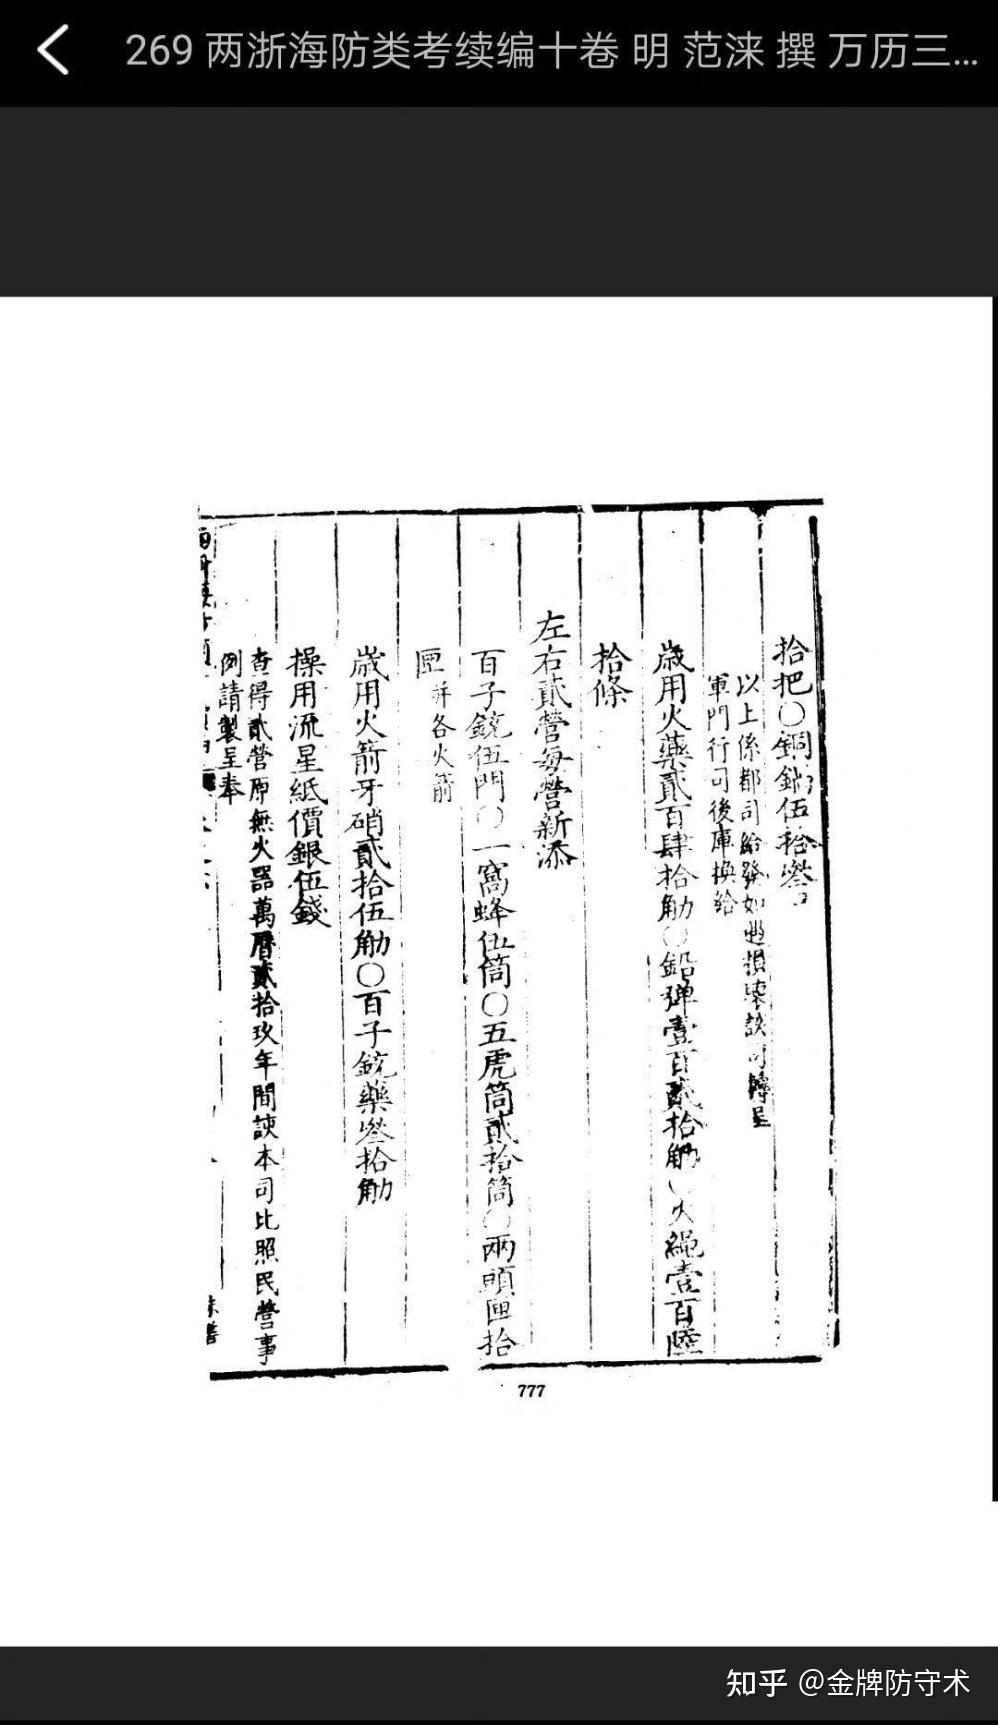 269 两浙海防类考续编十卷 明 范涞 撰 万历三...
拾把〇銅鍋伍拾叄口
以上係都司給發如遇損壞該司轉呈
軍門行司後庫換給
歲用火藥貳百肆拾觔〇鉛彈壹百貳拾觔〇火繩壹百陸
拾條
左右貳營每營新添
百子銃伍門〇一窩蜂伍筒〇五虎筒貳拾筒〇兩頭匣拾
匣并各火箭
歲用火箭牙硝貳拾伍觔〇百子銃藥叄拾觔
操用流星紙價銀伍錢
查得貳營原無火器萬曆貳拾玖年間該本司比照民營事
例請製呈奉
777
知乎 @金牌防守术